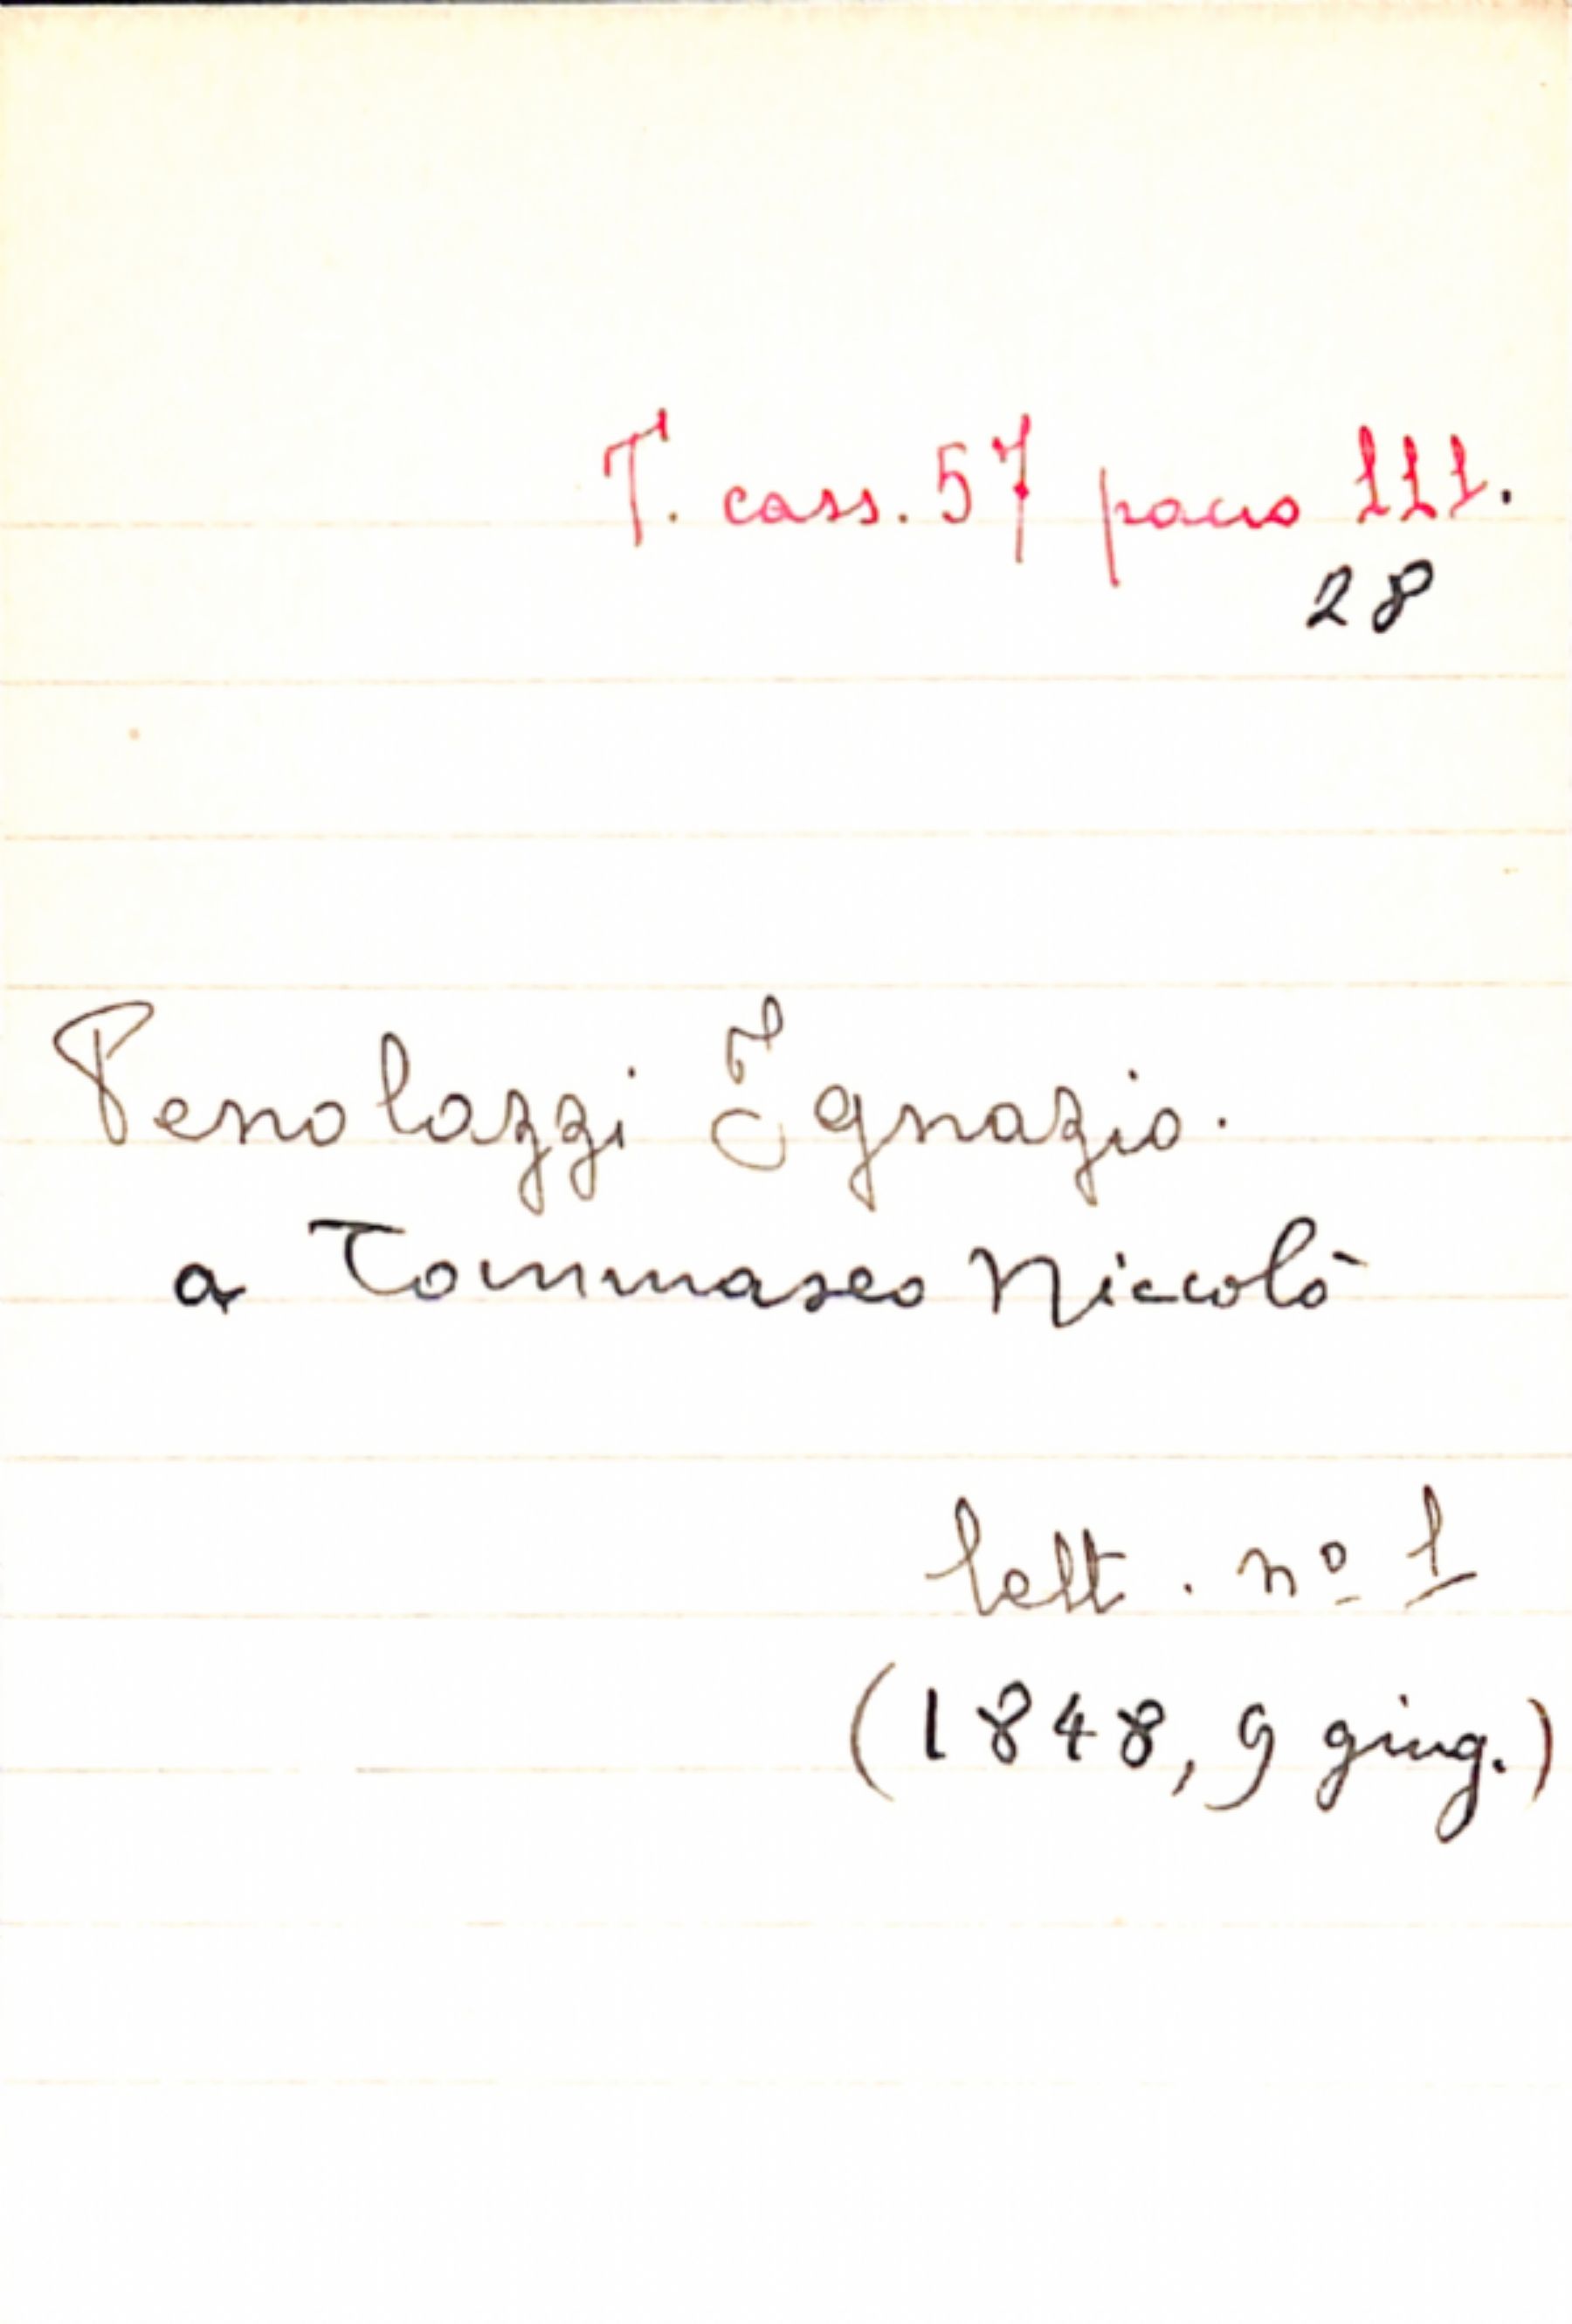 T. cass. 57 pacco 111.
28
Penolazzi Ignazio.
a Tommaseo Niccolò
lett. nº 1
(1848, 9 giug.)